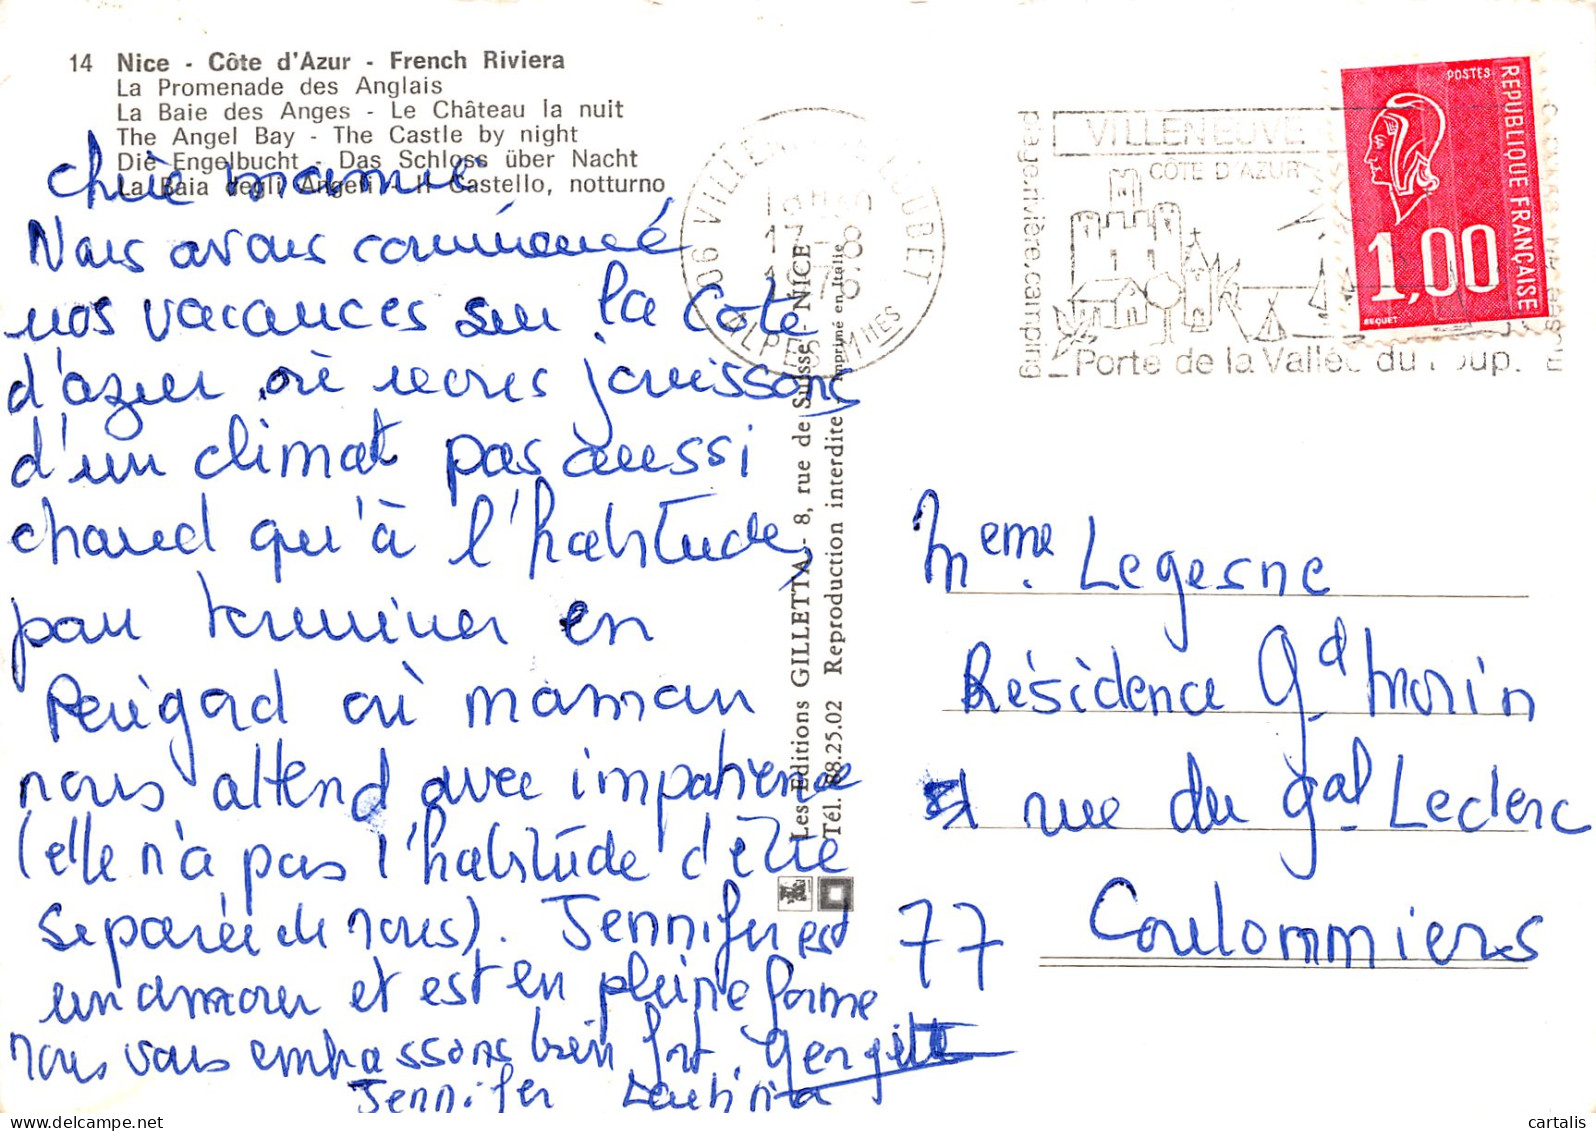 14 Nice - Côte d'Azur - French Riviera
La Promenade des Anglais
La Baie des Anges - Le Château la nuit
The Angel Bay - The Castle by night
Die Engelbucht - Das Schloss über Nacht
La Baia degli Angeli - Il Castello, notturno
chère mamie
Nous avons commencé
nos vacances sur la Côte
d'azur où nous jouissons
d'un climat pas aussi
chaud qu'à l'habitude,
pour terminer en
Périgord où maman
nous attend avec impatience
(elle n'a pas l'habitude d'être
séparée de nous). Jennifer est
un amour et est en pleine forme
nous vous embrassons bien fort. Georgette
Jennifer Laetitia
Les Editions GILLETTA - 8, rue de Suisse - NICE
Tél. 88.25.02 Reproduction interdite Imprimé en Italie
06 VILLENEUVE LOUBET
ALPES Mmes
page.rivière.camping
VILLENEUVE
CÔTE D'AZUR
Porte de la Vallée du Loup.
POSTES
REPUBLIQUE FRANÇAISE
1,00
BEQUET
Meme. Legesne
Résidence Gd. Morin
rue du Gal. Leclerc
77 Coulommiers
cartalis.delcampe.net
cartalis